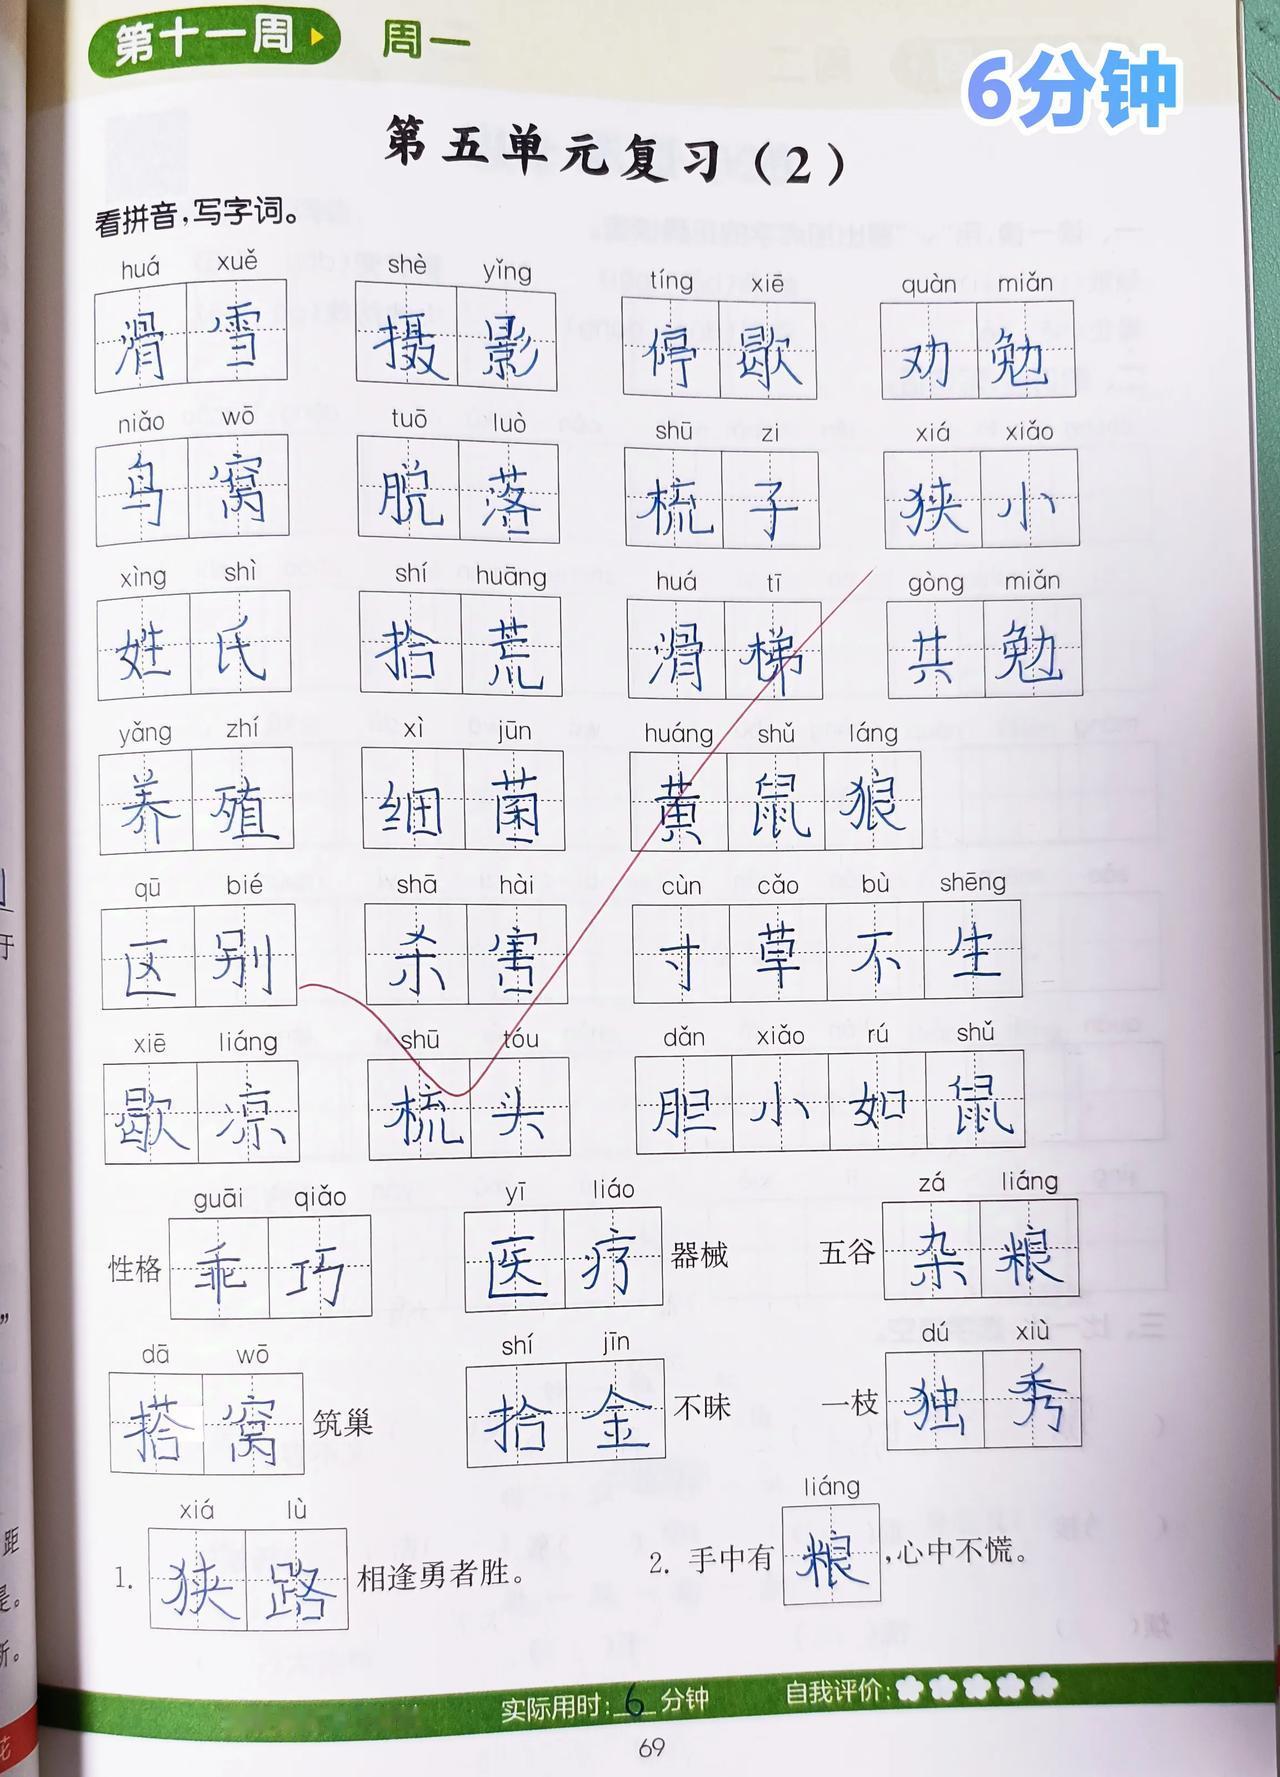 第十一周 周一
6分钟
第五单元复习（2）
看拼音，写字词。
huá xuě shè yǐng tíng xiē quàn miǎn
滑雪 摄影 停歇 劝勉
niǎo wō tuō luò shū zi xiá xiǎo
鸟窝 脱落 梳子 狭小
xìng shì shí huāng huá tī gòng miǎn
姓氏 拾荒 滑梯 共勉
yǎng zhí xì jūn huáng shǔ láng
养殖 细菌 黄鼠狼
qū bié shā hài cùn cǎo bù shēng
区别 杀害 寸草不生
xiē liáng shū tóu dǎn xiǎo rú shǔ
歇凉 梳头 胆小如鼠
guāi qiǎo yī liáo zá liáng
性格乖巧 医疗器械 五谷杂粮
dā wō shí jīn dú xiù
搭窝筑巢 拾金不昧 一枝独秀
xiá lù liáng
1. 狭路相逢勇者胜。 2. 手中有粮，心中不慌。
实际用时：6分钟 自我评价：
69
于
距
是。
新。
花